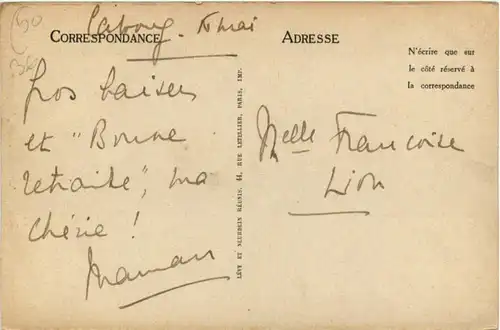 Cabourg. mai
CORRESPONDANCE
gros baisers
et "Bonne
retraite", ma
chérie !
Maman
LÉVY ET NEURDEIN RÉUNIS, 44, RUE LETELLIER, PARIS, IMP.
ADRESSE
N'écrire que sur
le côté réservé à
la correspondance
Melle Francoise
Lion